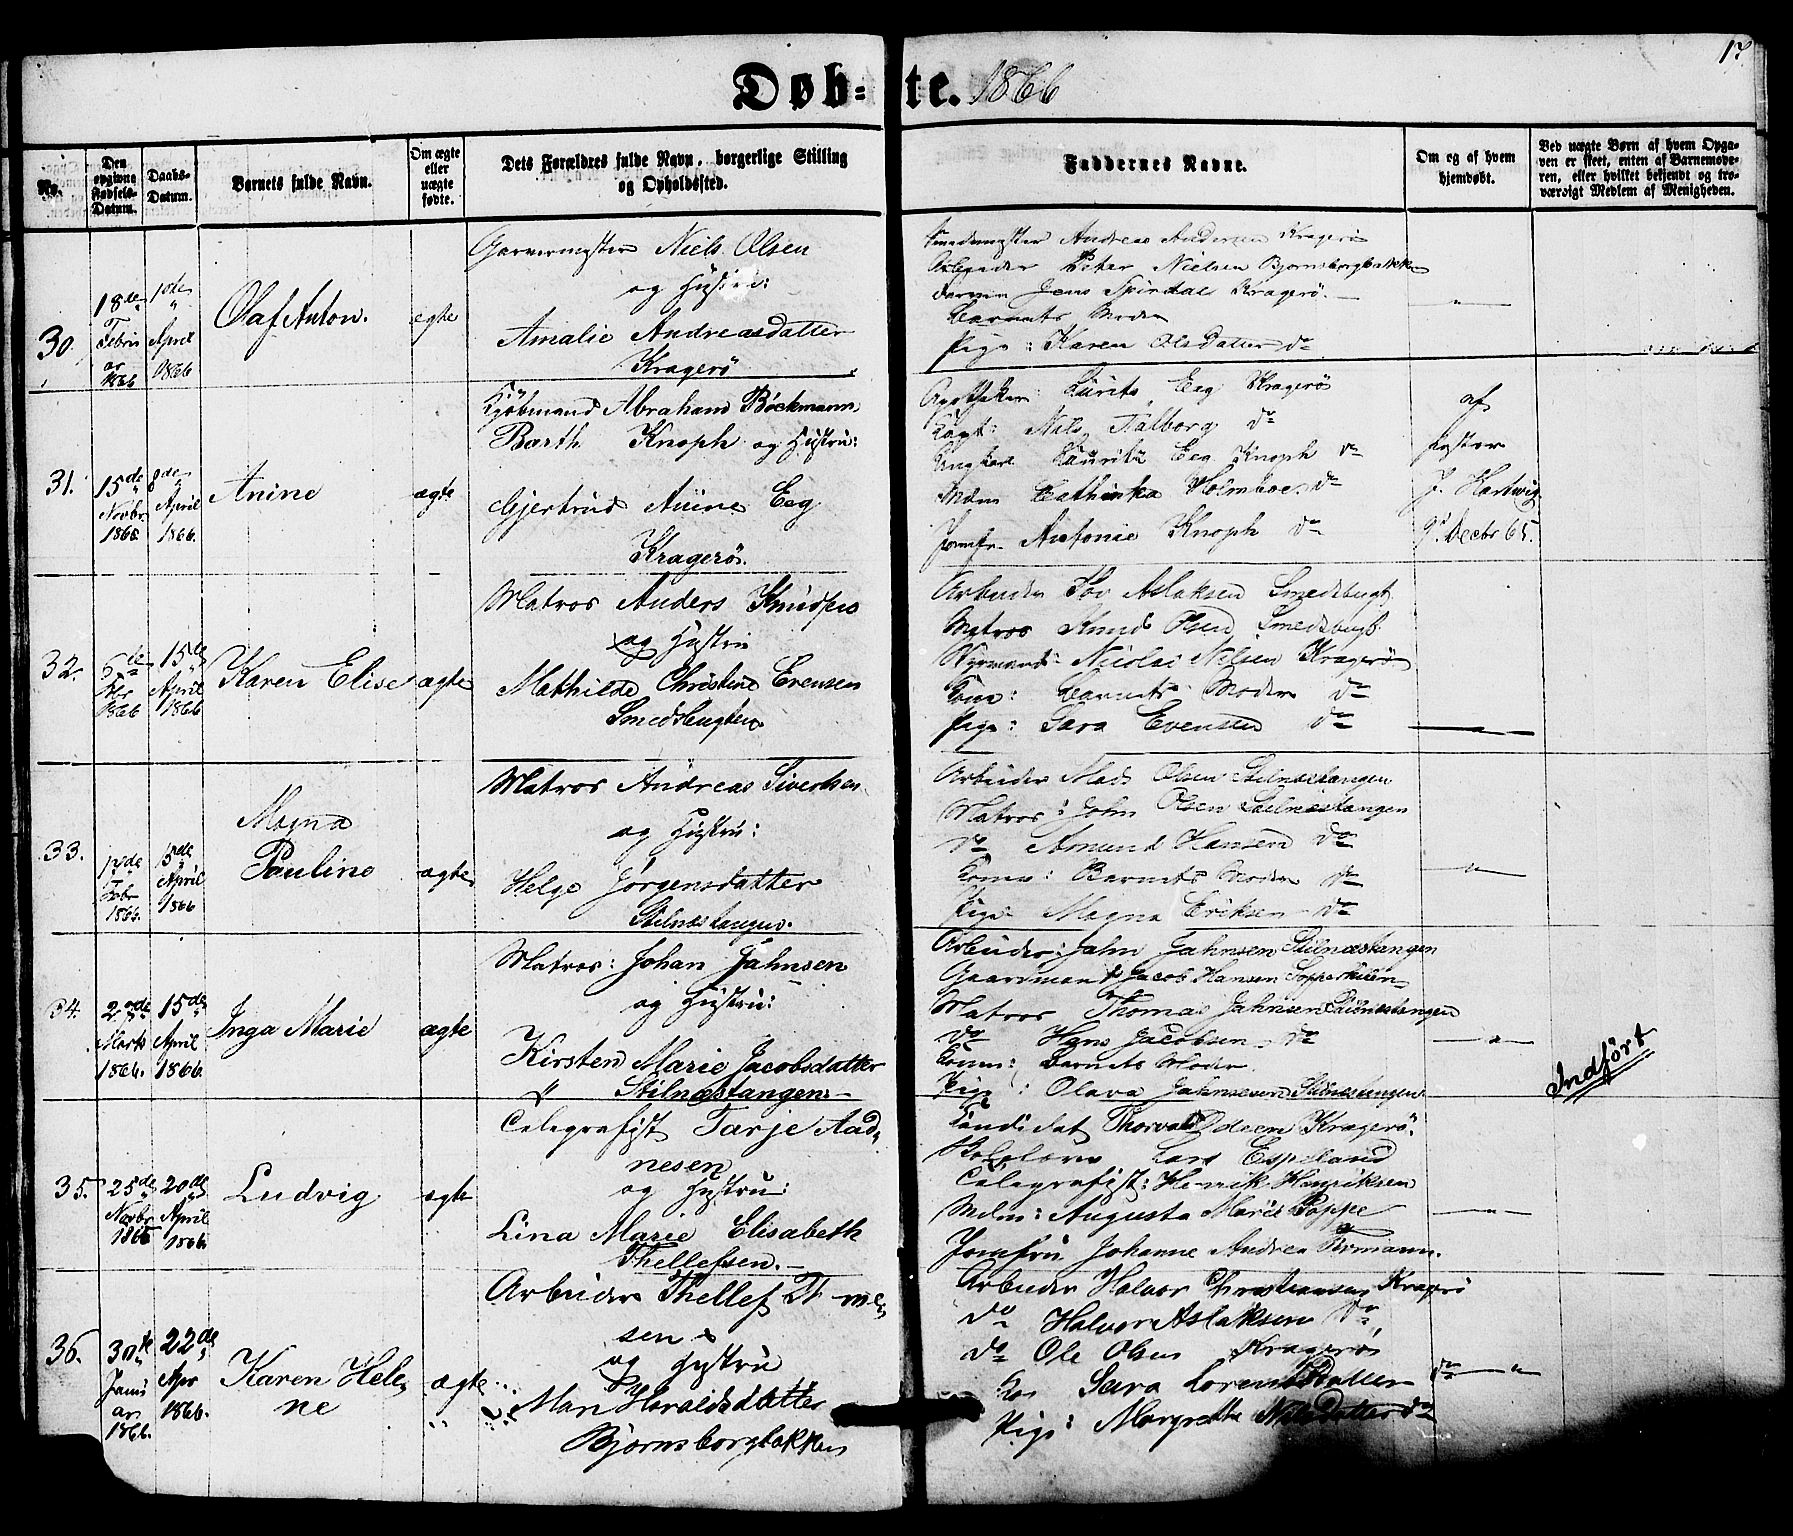 17
Døb-te. 1866
No.
Den opgivne Fødsels-Datum.
Daabs-Datum.
Barnets fulde Navn.
Om ægte eller uægte fødte.
Dets Forældres fulde Navn, borgerlige Stilling og Opholdssted.
Faddernes Navne.
Om og af hvem hjemdøbt.
Ved uægte Børn af hvem Opgaven er skeet, enten af Barnemoderen, eller hvilket bekjendt og troværdigt Medlem af Menigheden.
30.
18de Februar 1866
April 1866
Olaf Anton.
ægte
Garvermester Niels Olsen
og Hustru:
Amalie Andreasdatter
Kragerö
Smedmester Andreas Andersen Kragerö
Arbeider Peter Nielsen Bjornsborgbakken
Jens Kragerö.
Barnets Moder
Pige: Karen Olsdatter do
31.
15de Novbr. 1865
8de April 1866.
Anine
ægte
Kjöbmand Abraham Böckmann
Barth Knoph og Hustru:
Gjertrud Anine Eeg
Kragerö.
Apotheker: Lurits Eeg Kragerö
Kapt: Nils Falborg do
Ungkarl Lauritz Eeg Knoph do
Mdm Cathinka Holmboe. do
Jomfr. Antonie Knoph do
af
Pastor
J. Hartwig
9d Decbr 65.
32.
15de April 1866
Karen Elise
ægte
Matros Anders Knudsen
og Hustru
Mathilde Christine Evensen
Smedsbugten
Arbeider Tov Aslaksen Smedsbugt.
Matros Knud Olsen Smedsbugt.
Styrmand: Nicolai Nilsen Kragerö
Kone: Barnets Moder do
Pige: Sara Evensen do
33.
Febr 1866.
15de April 1866
Magna
Pauline
ægte
Matros Andreas Sivertsen
og Hustru:
Helge Jörgensdatter
Stilnæstangen.
Arbeider Mads Olsen Stilnæstangen
Matros: John Olsen Stilnæstangen
do Amund Hansen do
Kone: Barnets Moder do
Pige Magna Eriksen do
34.
Marts 1866.
15de April 1866.
Inga Marie
ægte
Matros: Johan Jahnsen
og Hustru:
Kirsten Marie Jacobsdatter
Stilnæstangen.
Arbeider: Jahn Jahnsen Stilnæstangen
Gaardmand Jacob Hansen
Matros Thomas Jahnsen Stilnæstangen
do Hans Jacobsen do
Kone: Barnets Moder.
Pige: Olava Jahnsen Stilnæstangen
Indfört
35.
25de Novbr 1865
20de April 1866.
Ludvig
ægte
Telegrafist Tarje Aad-
nesen
og Hustru:
Lina Marie Elisabeth
Thellefsen.
Kandidat Thorvald Kragerö.
Lars Espeland
Telegrafist: Henrik Henriksen
Mdm: Augusta Marie Poppe
Jomfru Johanne Andrea
36.
30te Januar 1866.
22de Apr 1866.
Karen Hele-
ne
ægte
Arbeider Thellef
sen
og Hustru
Mari Haraldsdatter
Bjornsborgbakken
Arbeider Halvor Christiansen Kragerö
do Halvor Aslaksen do
do Ole Olsen Kragerö
Sara Lorensdatter do
Pige: Margrethe Nilsdatter do